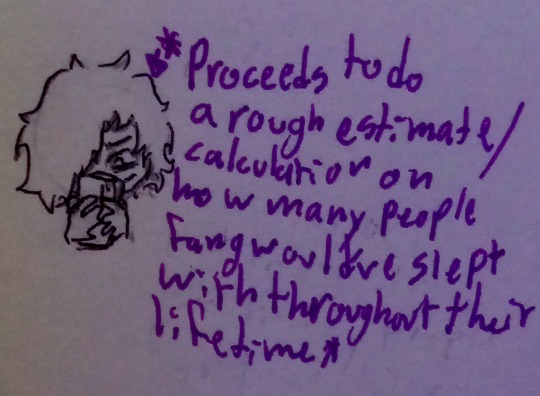 *Proceeds to do
a rough estimate/
calculation on
how many people
Fang would've slept
with throughout their
lifetime*